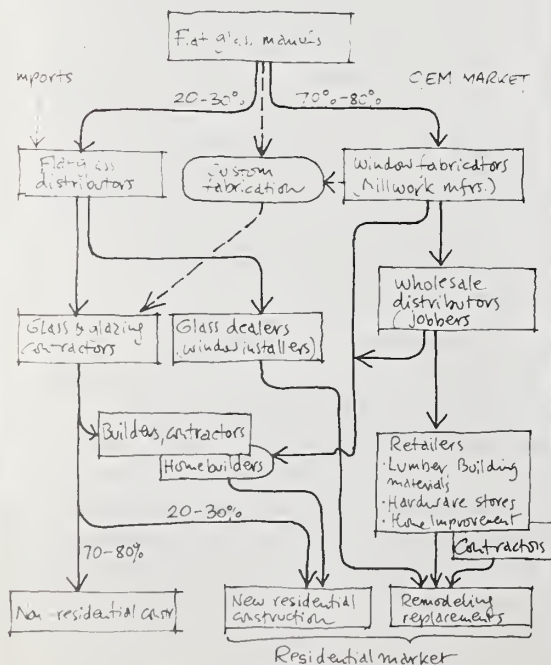 Flat glass manufs
imports
20-30%
70%-80%
OEM MARKET
Flat glass
distributors
Custom
fabrication
Window fabricators
(Millwork mfrs.)
Wholesale
distributors
(jobbers
Glass & glazing
contractors
Glass dealers
(window installers)
Builders, contractors
Homebuilders
Retailers
· Lumber Building
materials
· Hardware stores
· Home Improvement
Contractors
20-30%
70-80%
Non-residential constr
New residential
construction
Remodeling
replacements
Residential market